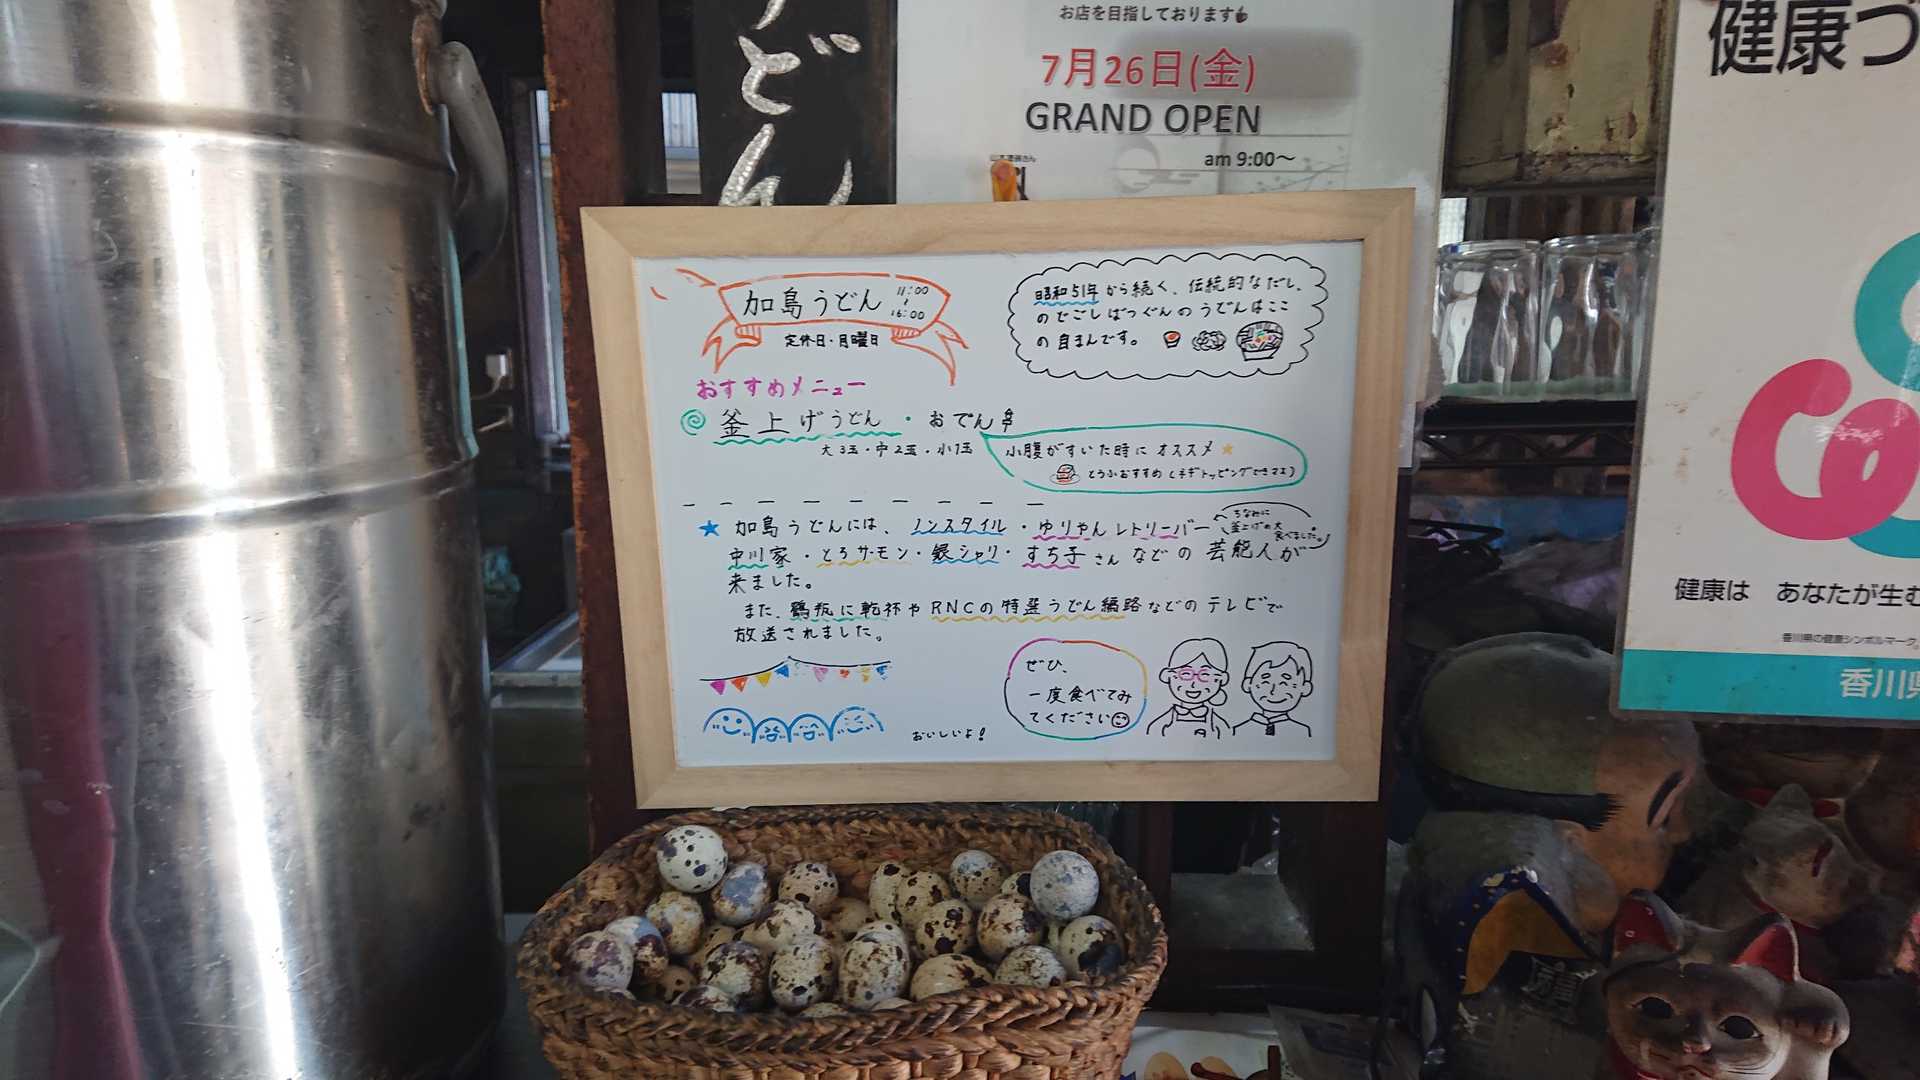 うどん
お店を目指しております
7月26日(金)
GRAND OPEN
am 9:00～
健康づ
加島うどん
11:00
～
16:00
定休日・月曜日
昭和51年から続く、伝統的なだし、
のどごしばつぐんのうどんはここ
の自まんです。
おすすめメニュー
釜上げうどん・おでん
大3玉・中2玉・小1玉
小腹がすいた時にオススメ
とうふおすすめ(ネギトッピングできます)
★加島うどんには、ノンスタイル・ゆりやんレトリィバー
ちなみに
釜上げの大
食べました。
中川家・とろサーモン・銀シャリ・すち子さんなどの芸能人が
来ました。
また、鶴瓶に乾杯やRNCの特選うどん遍路などのテレビで
放送されました。
ぜひ、
一度食べてみ
てください
おいしいよ!
健康は あなたが生む
香川県の健康シンボルマーク
香川県